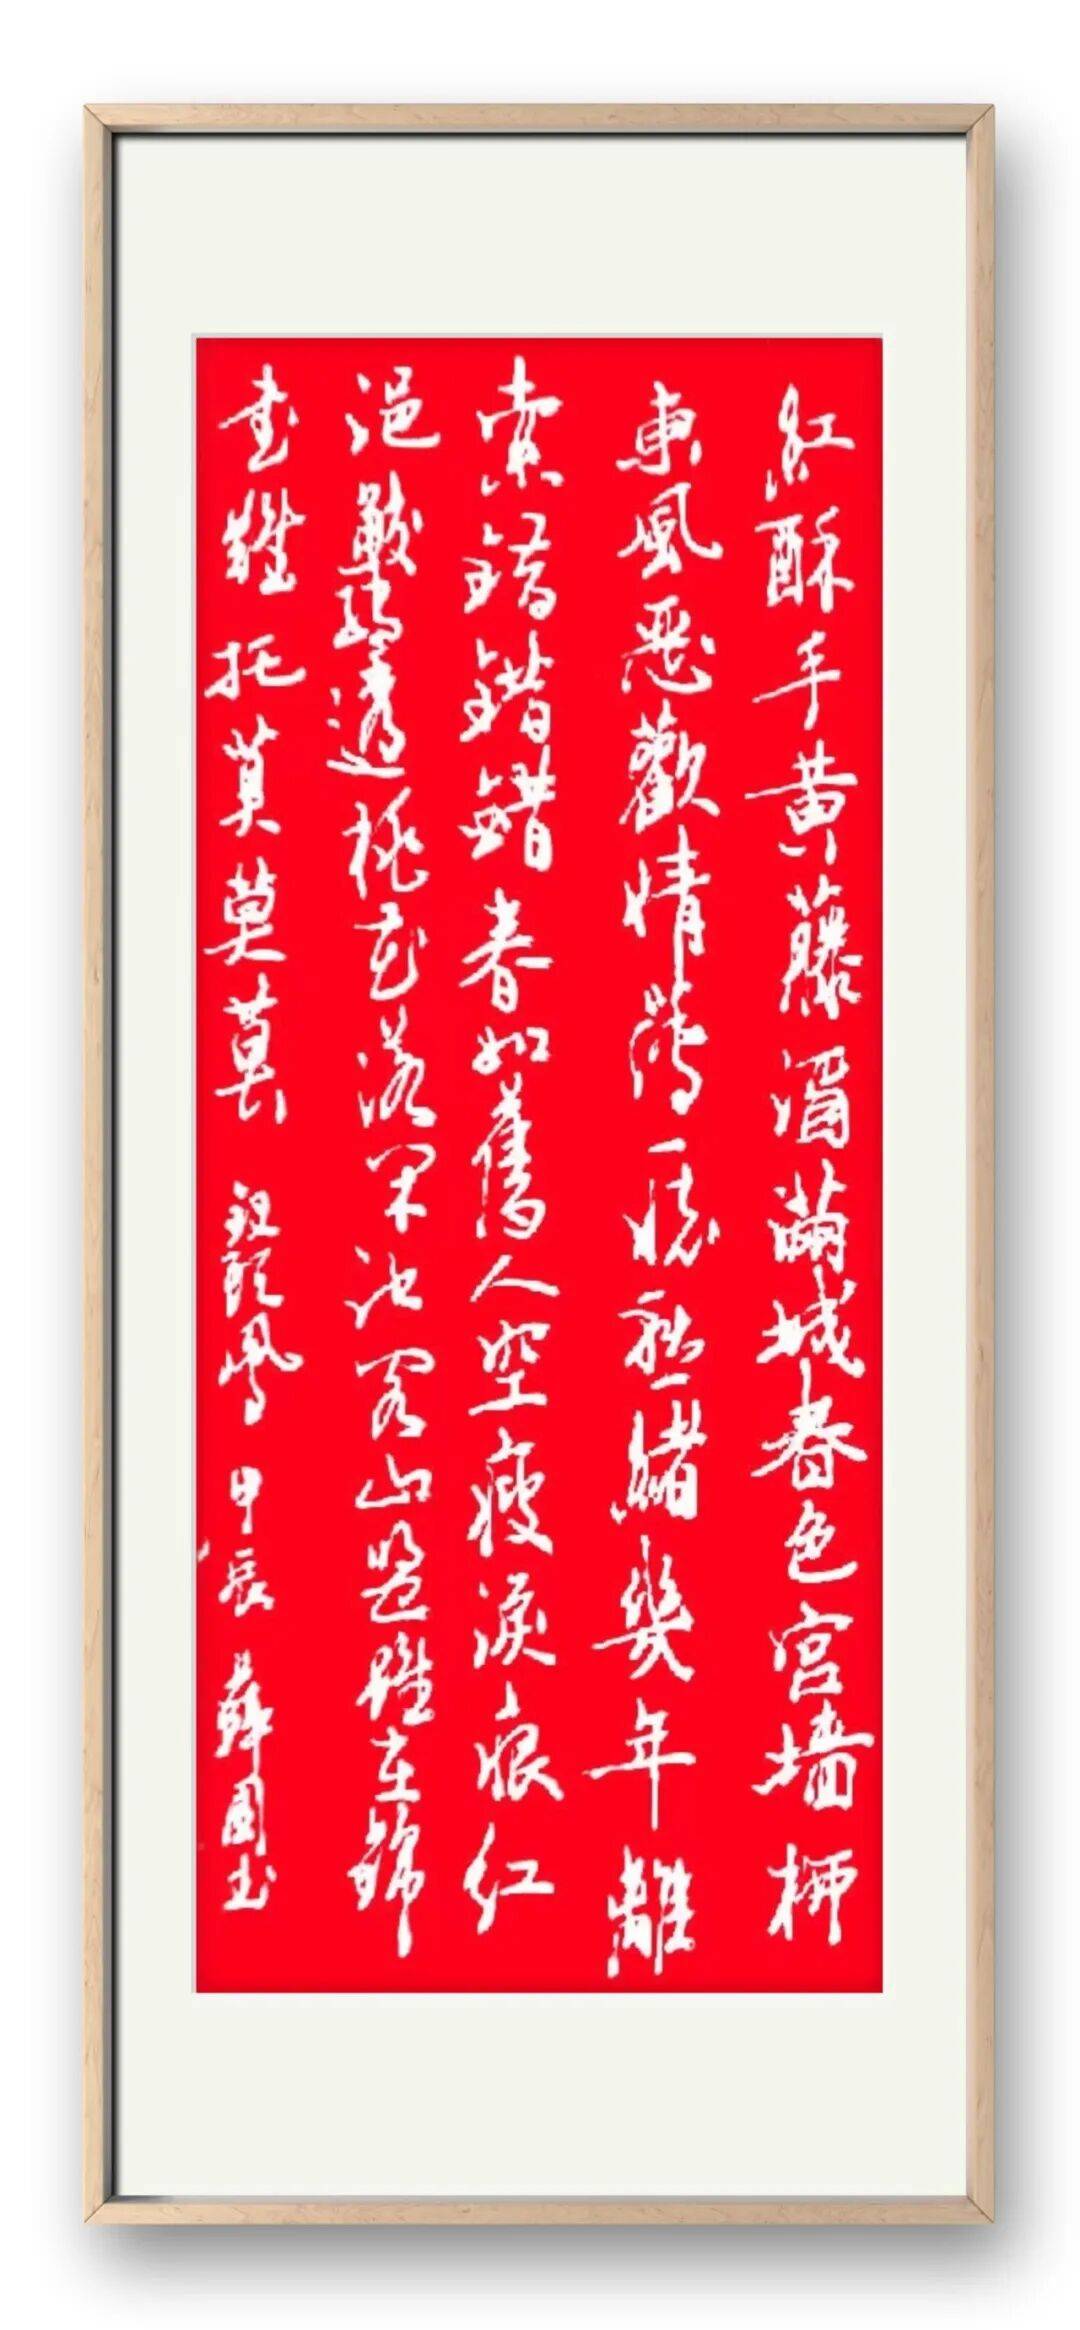 紅酥手黄藤酒滿城春色宫墙柳
東風惡歡情薄一懷愁緒幾年離
索錯錯錯春如舊人空瘦淚痕紅
浥鲛綃透桃花落闲池阁山盟雖在錦
书難托莫莫莫 钗头鳳 甲辰 薛國书